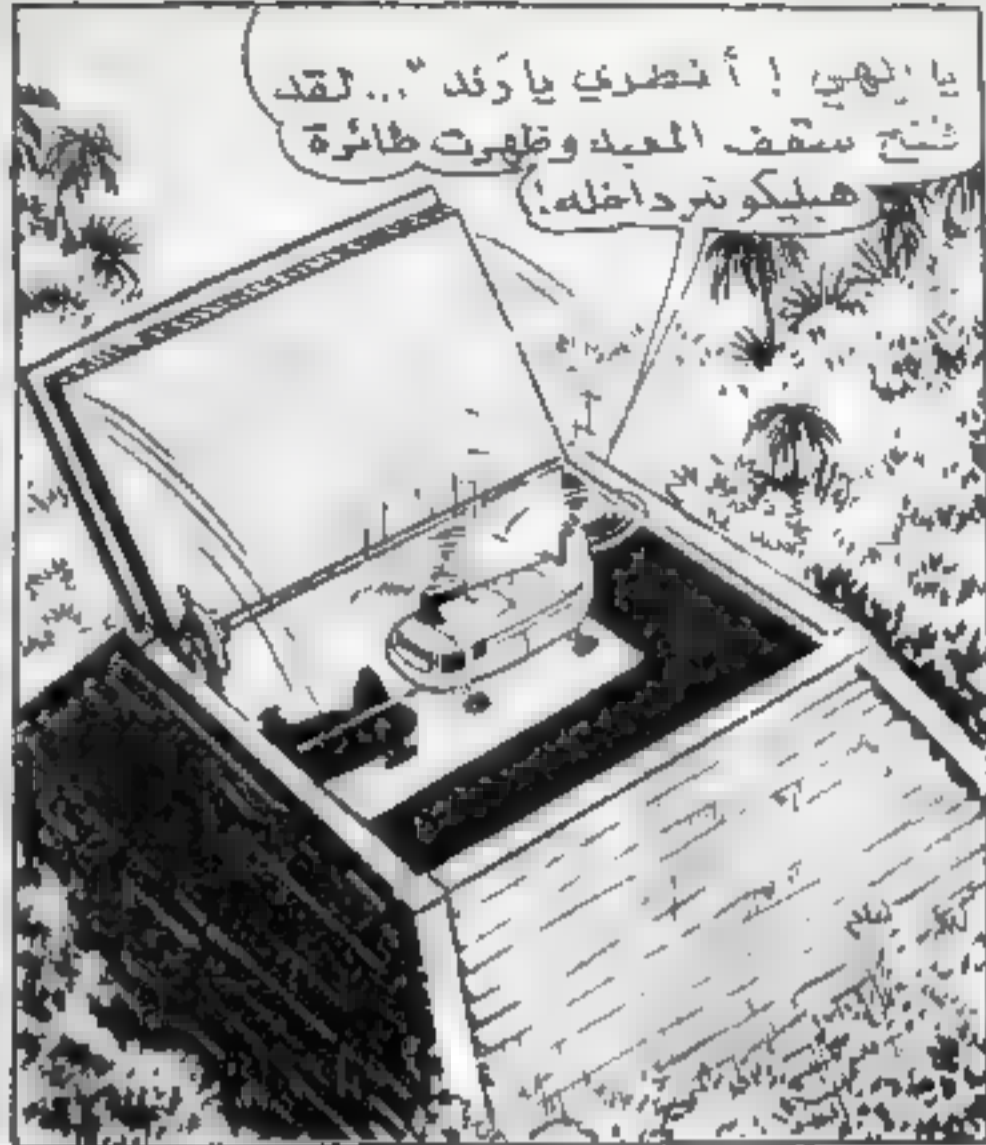 يا إلهي ! أنظري يا رند "... لقد
فتح سقف المعبد وظهرت طائرة
هيليكوبتر داخله!